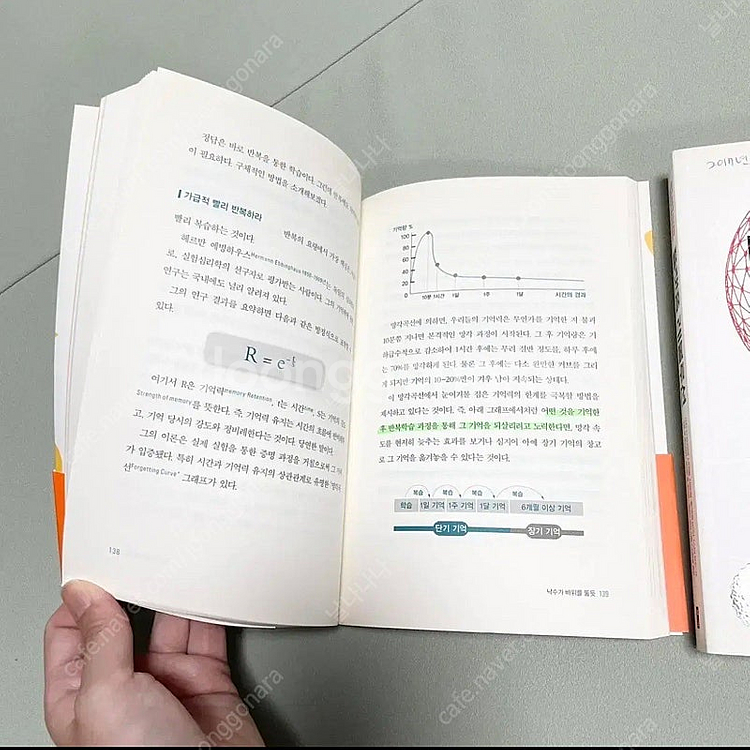 정답은 바로 반복을 통한 학습이다. 그런데
이 필요하다. 구체적인 방법을 소개해보겠다.
가급적 빨리 반복하라
반복의 요령에서 가장
빨리 복습하는 것이다.
헤르만 에빙하우스Hermann Ebbinghaus 1850-1909는
로, 실험심리학의 선구자로 평가받는 사람이다. 그의
연구는 국내에도 널리 알려져 있다.
그의 연구 결과를 요약하면 다음과 같은 방정식으로
있다.
R = e
여기서 R은 기억력memory Retention, t는 시간time, S는 기억의
Strength of memory를 뜻한다. 즉, 기억력 유지는 시간의 흐름에
고, 기억 당시의 강도와 정비례한다는 것이다. 당연한 말이다.
그의 이론은 실제 실험을 통한 증명 과정을 거침으로써 그
가 입증됐다. 특히 시간과 기억력 유지의 상관관계로 유명한
선Forgetting Curve" 그래프가 있다.
138
기억량 %
100
80
60
40
20
0
10분 1시간 1일 1주 1달 시간의 경과
망각곡선에 의하면, 우리들의 기억력은 무언가를 기억한 지 불과
10분쯤 지나면 본격적인 망각 과정이 시작된다. 그 후 기억량은 기
하급수적으로 감소하여 1시간 후에는 무려 절반 정도를, 하루 후에
는 70%를 망각하게 된다. 물론 그 후에는 다소 완만한 커브를 그리
게 되지만 기억의 10~20%만이 겨우 남아 지속되는 상태다.
이 망각곡선에서 눈여겨볼 점은 기억력의 한계를 극복할 방법을
제시하고 있다는 것이다. 즉, 아래 그래프에서처럼 어떤 것을 기억한
후 반복학습 과정을 통해 그 기억을 되살리려고 노력한다면, 망각 속
도를 현저히 늦추는 효과를 보거나 심지어 아예 장기 기억의 창고
로 그 기억을 옮겨놓을 수 있다는 것이다.
복습 복습 복습 복습
학습 1일 기억 1주 기억 1달 기억 6개월 이상 기억
단기 기억 장기 기억
낙수가 바위를 뚫듯 139
2017년
cafe.naver.com/joonggonara
날나나나